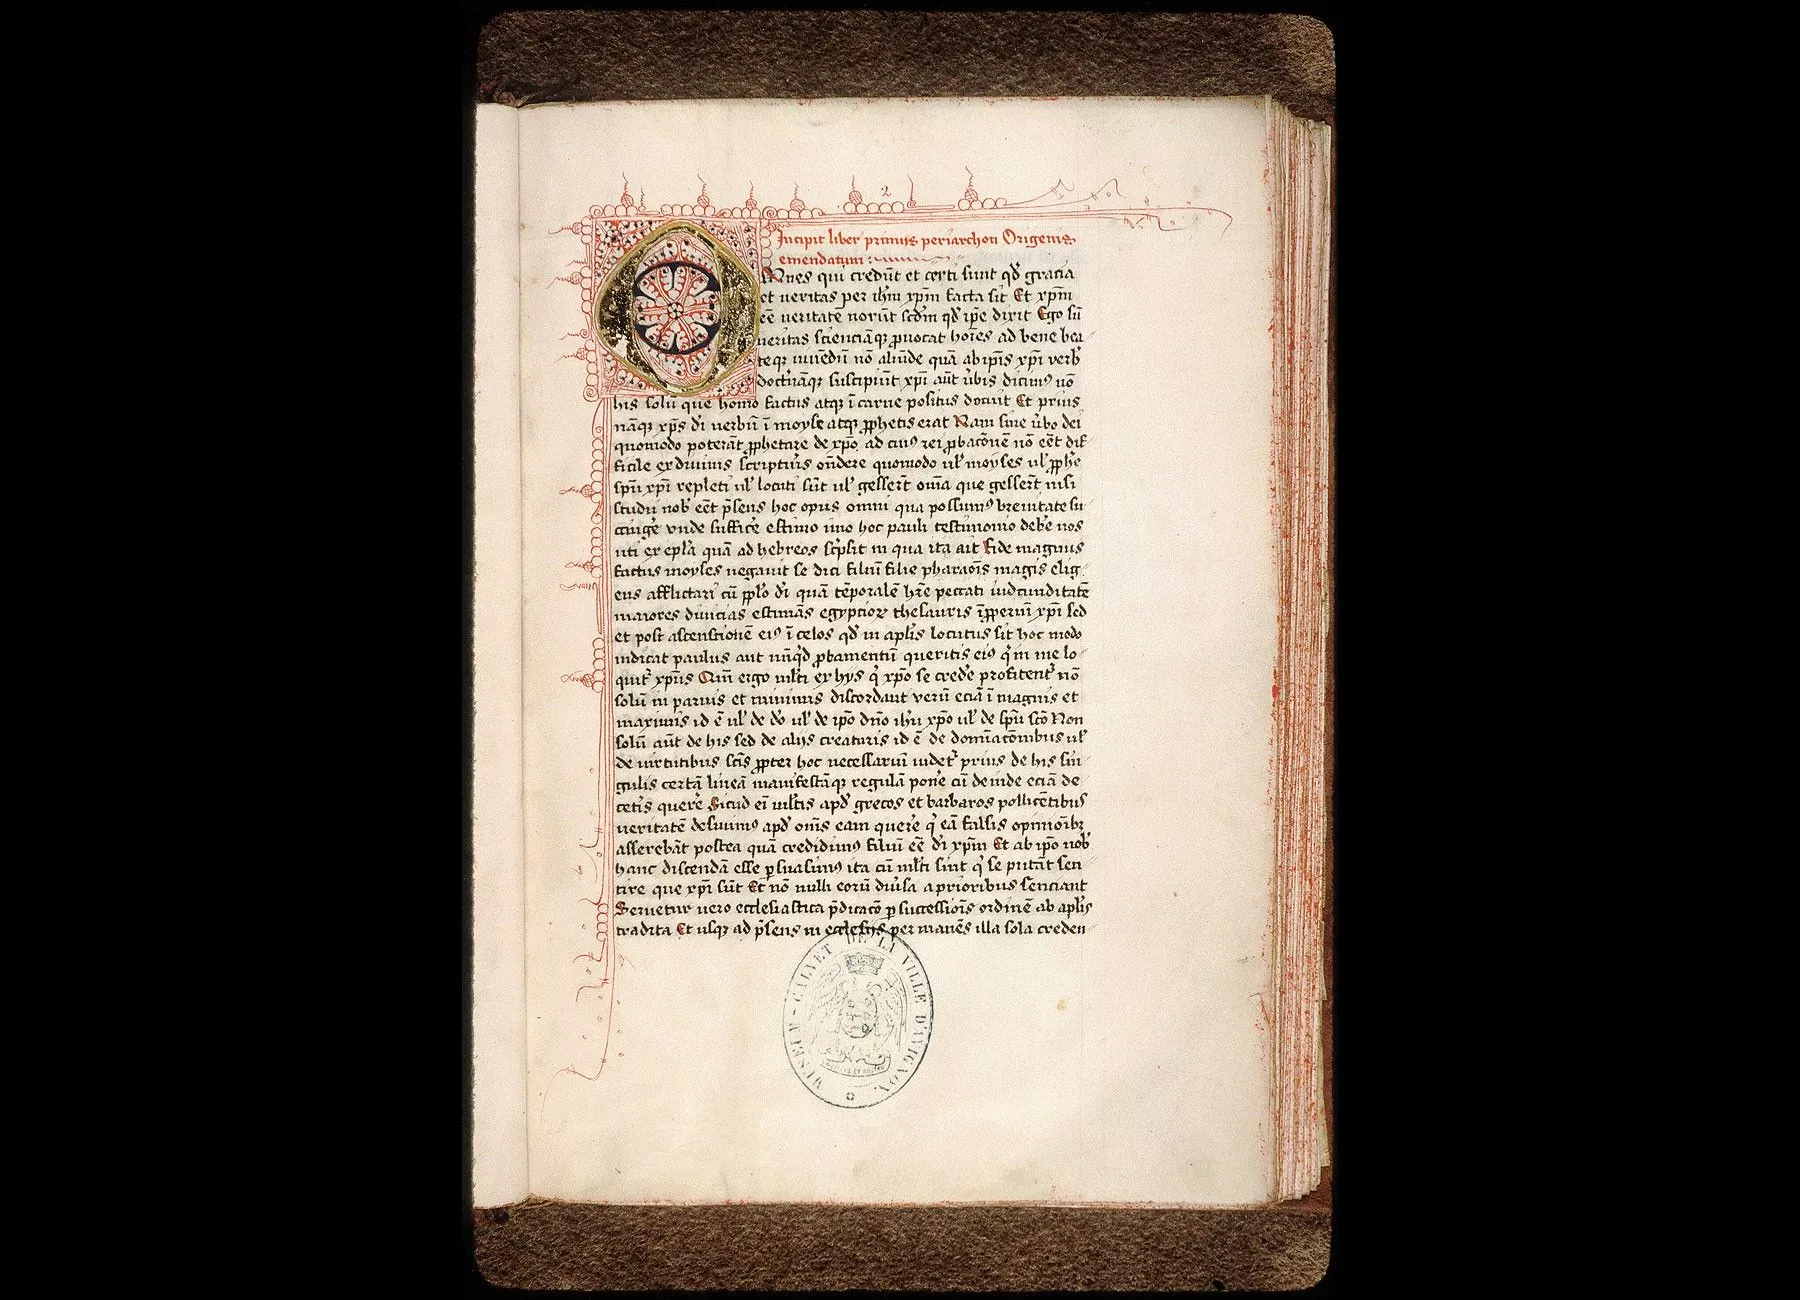 2
Incipit liber primus periarchon Origenis
emendatum
Omnes qui credũt et certi sunt qđ gracia
et ueritas per ihm xp̃m facta sit Et xp̃m
eẽ ueritatẽ norũt scđm qđ ip̃e dixit Ego sũ
ueritas scienciãqꝫ ꝓuocat hoĩes ad bene bea
teqꝫ uiuẽdũ nõ aliũde quã ab ip̃is xp̃i verb̾
doctͥnaqꝫ suscipiũt xp̃i aũt ũbis dicimꝰ nõ
his solũ que homo factus atqꝫ ĩ carne positus docuit Et prius
nãqꝫ xp̃s di uerbũ ĩ moyse atqꝫ ꝓphetis erat Nam sine ũbo dei
quomodo poterãt ꝓphetare de xp̃o ad cuiꝰ rei ꝓbacõnẽ nõ eẽt dif
ficile ex diuinis scripturis oñdere quomodo ul̾ moyses ul̾ ꝓphe
sp̃u xp̃i repleti ul̾ locuti sũt ul̾ gessert̃ omĩa que gessert̃ nisi
studii nob̾ eẽt p̃sens hoc opus omni qua possumꝰ breuitate su
cinge̾ vnde suffice̾ estimo uno hoc pauli testimonio deb̾e nos
uti ex ep̃la quã ad hebreos sc̾psit in qua ita ait Fide magnus
factus moyses negauit se dici filiũ filie pharaoĩs magis elig
ens afflictari cũ pp̃lo di quã tẽporalẽ hr̃e peccati iucũnditatẽ
maiores diuicias estimãs egypcioꝝ thesauris ĩꝓperiũ xp̃i sed
et post ascensionẽ eiꝰ ĩ celos qđ in ap̃lis locutus sit hoc modo
indicat paulus aut nũqͥd ꝓbamentũ queritis eiꝰ qͥ in me lo
quit̃ xp̃us Qm̃ ergo ml̾ti ex hys qͥ xp̃o se crede̾ profitent̃ nõ
solũ in paruis et minimis discordant verũ eciã ĩ magnis et
maximis id ẽ ul̾ de do ul̾ de ip̃o dño ihũ xp̃o ul̾ de sp̃u scõ Non
solũ aũt de his sed de alijs creaturis id ẽ de dominacõnibus ul̾
de uirtutibus scĩs ꝓpter hoc necessariũ uidet̃ prius de his sin
gulis certã lineã manifestãqꝫ regulã pone̾ cũ deinde eciã de
cet̾is quere̾ Sicud eĩ ml̾tis apđ grecos et barbaros pollicẽtibus
ueritatẽ desiuimꝰ apđ om̃s eam quere̾ qͥ eã falsis opinioĩbꝫ
asserebãt postea quã credidimꝰ filiũ eẽ di xp̃m Et ab ip̃o nob̾
hanc discendã esse ꝑsuasimꝰ ita cũ ml̾ti sint qͥ se putãt sen
tire que xp̃i sũt Et nõ nulli eorũ diũsa a prioribus senciant
Seruetur uero ecclesiastica p̃dicacõ ꝑ successioĩs ordinẽ ab ap̃lis
tradita Et usqꝫ ad p̃sens in ecclesijs per manẽs illa sola creden
MUSEUM-CALVET DE LA VILLE D'AVIGNON.